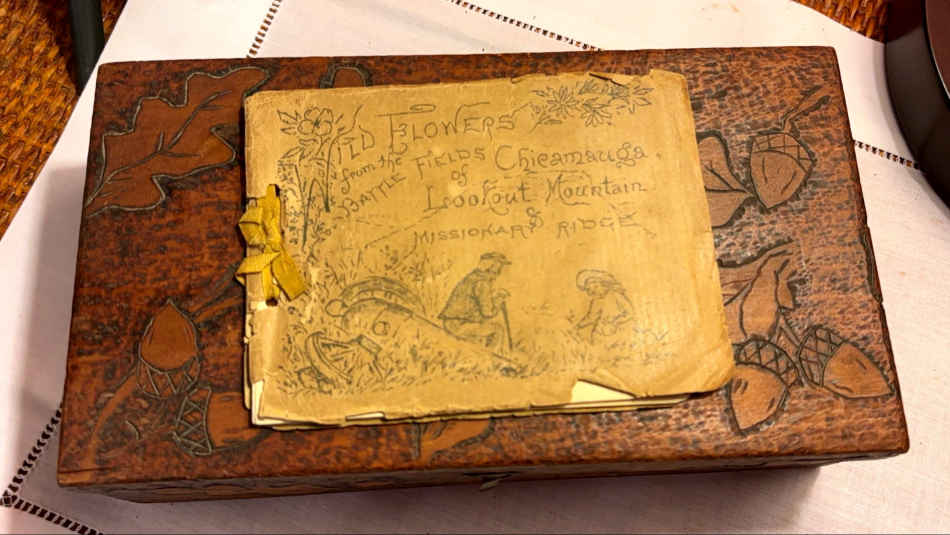 WILD FLOWERS
from the
BATTLE FIELDS
of
Chicamauga,
Lookout Mountain
&
MISSIONARY RIDGE